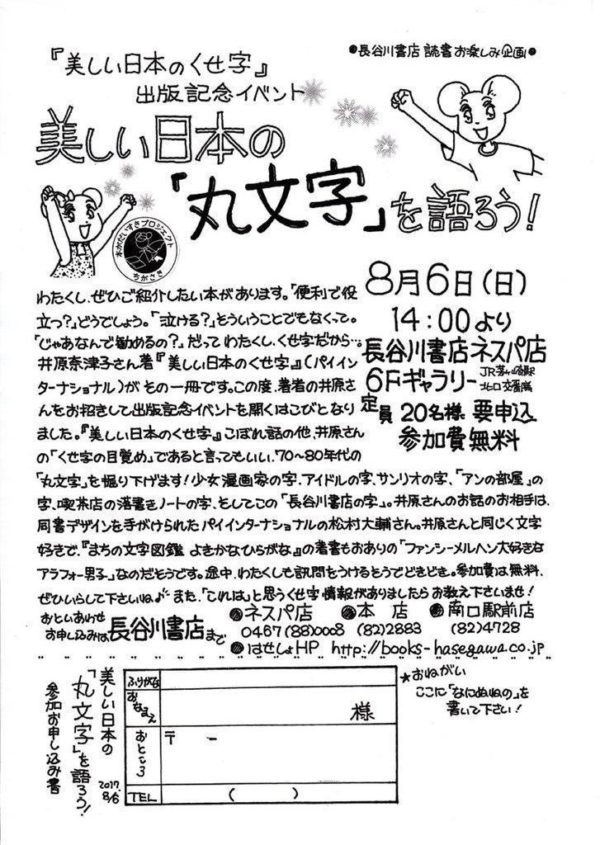 ●長谷川書店 読書お楽しみ企画●
『美しい日本のくせ字』
出版記念イベント
美しい日本の
「丸文字」を語ろう!
本がだいすきプロジェクト
ちがさき
8月6日(日)
14:00より
長谷川書店ネスパ店
6Fギャラリー
JR茅ヶ崎駅
北口交番前
定員 20名様 要申込
参加費無料
わたくし、ぜひご紹介したい本があります。「便利で役
立つ?」どうでしょう。「泣ける?」そういうことでもなくって。
「じゃあなんで勧めるの?」だって わたくし、くせ字だから…
井原奈津子さん著『美しい日本のくせ字』(パイイン
ターナショナル)が その一冊です。この度、著者の井原さ
んをお招きして出版記念イベントを開くはこびとなり
ました。『美しい日本のくせ字』こぼれ話の他、井原さん
の「くせ字の目覚め」であると言ってもいい、70～80年代の
「丸文字」を掘り下げます!少女漫画家の字、アイドルの字、サンリオの字、「アンの部屋」の
字、喫茶店の落書きノートの字、そしてこの「長谷川書店の字」。井原さんのお話のお相手は、
同書デザインを手がけられた パイインターナショナルの松村大輔さん。井原さんと同じく文字
好きで、『まちの文字図鑑 よきかなひらがな』の著書もおありの「ファンシーメルヘン大好きな
アラフォー男子」なのだそうです。途中、わたくしも訊問をうけるそうでどきどき。参加費は無料、
ぜひいらして下さいね♪ また、「これは」と思うくせ字情報がありましたら お教え下さいませ!
おといあわせ
お申し込みは 長谷川書店まで
●ネスパ店 0467(88)0008
●本店 (82)2883
●南口駅前店 (82)4728
●はせしょHP http://books-hasegawa.co.jp
美しい日本の
「丸文字」を語ろう!
2017.
8/6
参加お申し込み書
ふりがな
おなまえ
様
おところ
〒 －
TEL ( )
★おねがい
ここに「なにぬねの」を
書いて下さい!